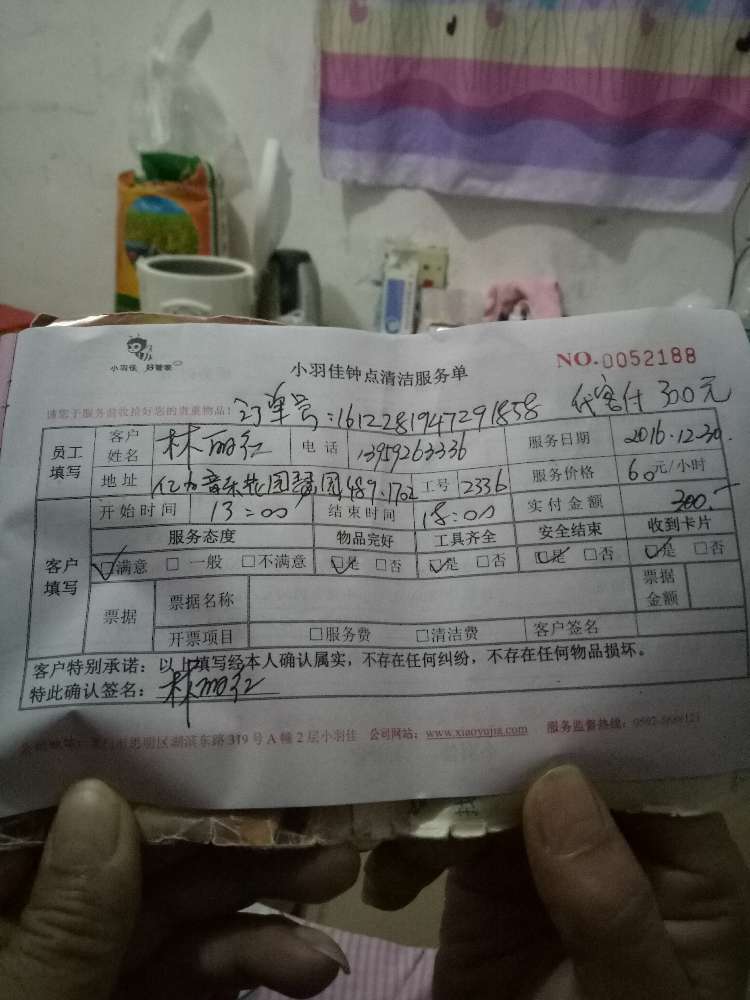 小羽佳 好管家
小羽佳钟点清洁服务单
NO.0052188
请您于服务前收拾好您的贵重物品!
订单号:16122819947291858 代客付 300元
员工填写 客户姓名 林丽红 电话 13959263336 服务日期 2016.12.30.
地址 亿力音乐花园 489.1702 工号 2336 服务价格 60元/小时
开始时间 13:00 结束时间 18:00 实付金额 300.-
客户填写 服务态度 物品完好 工具齐全 安全结束 收到卡片
☑满意 □一般 □不满意 ☑是 □否 ☑是 □否 ☑是 □否 ☑是 □否
票据 票据名称 票据金额
开票项目 □服务费 □清洁费 客户签名
客户特别承诺:以上填写经本人确认属实,不存在任何纠纷,不存在任何物品损坏。
特此确认签名:林丽红
市思明区湖滨东路319号A幢2层小羽佳 公司网站:www.xiaoyujia.com 服务监督热线: